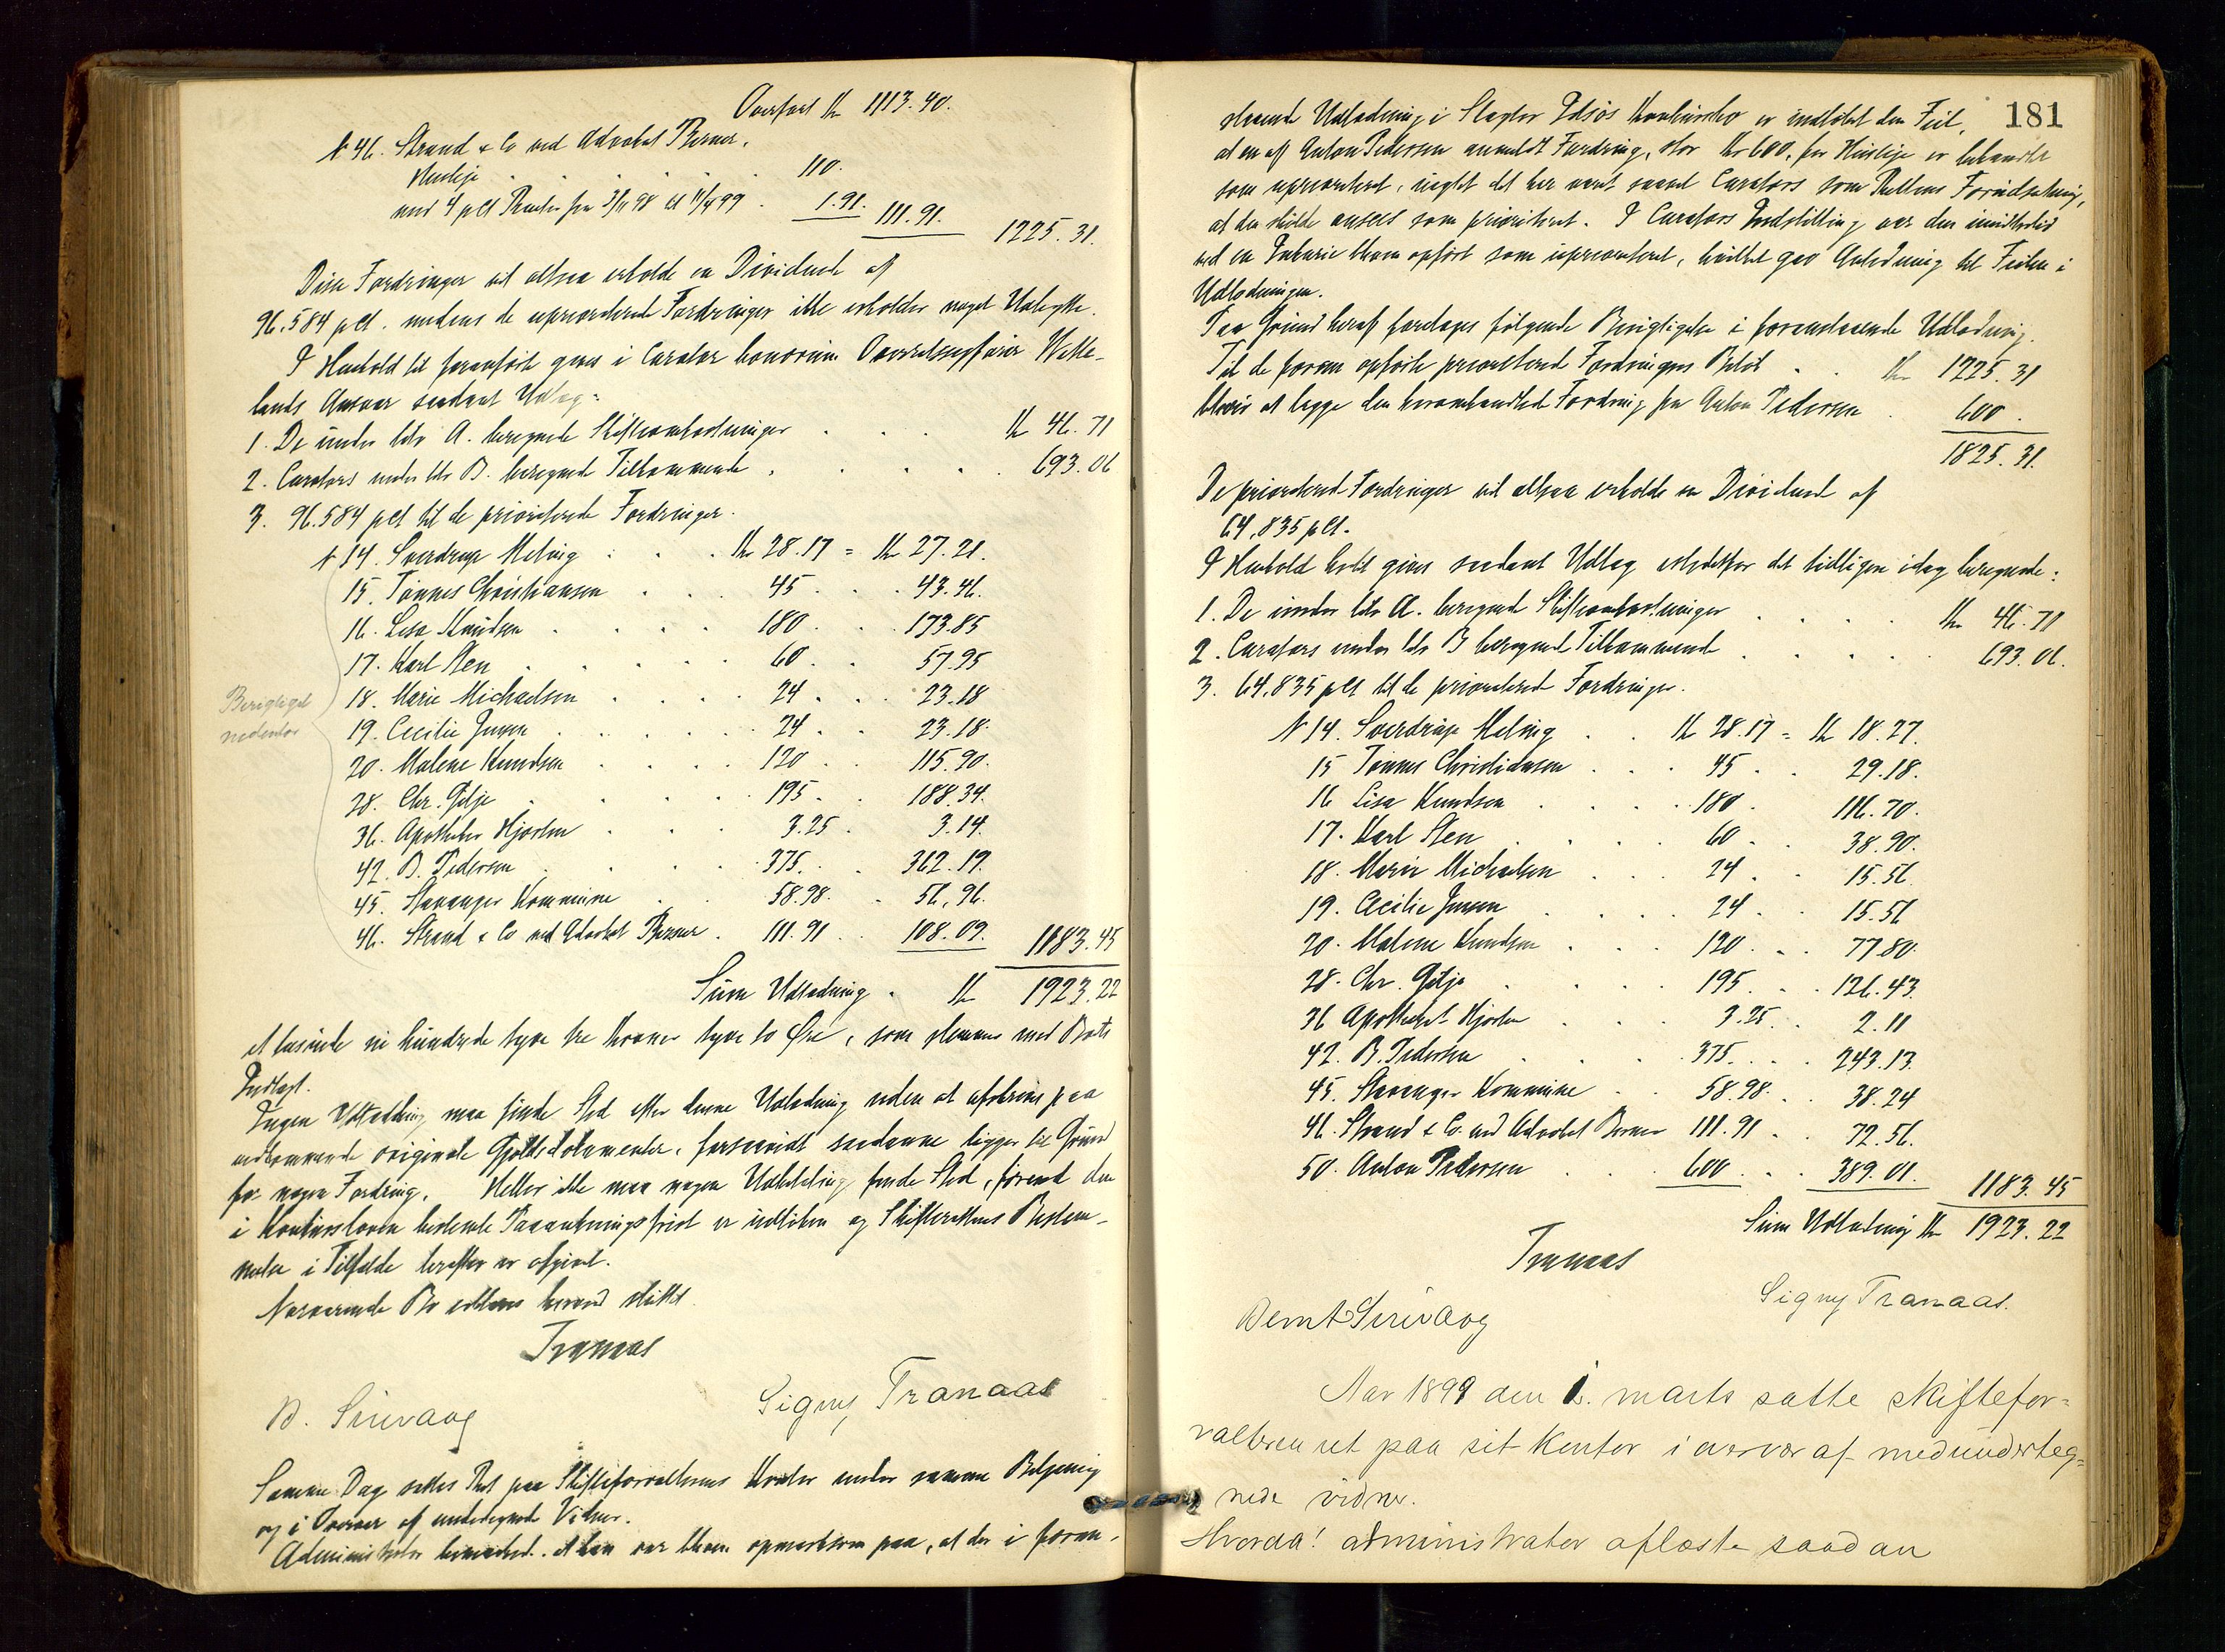 Overført Kr 1113.40.
N 46. Strand & Co ved Advokat Berner,
Husleje . . . . 110.
med 4 pCt Renter fra 3/11 98 til 11/4 99 . 1.91. 111.91. 1225.31.
Disse Fordringer vil altsaa erholde en Dividende af
96.584 pCt. medens de upriorterede Fordringer ikke erholder noget Udbytte.
I Henhold til foranførte gives i Curator bonorum Overretssagfører
lands Ansvar saadant Udlæg:
1. De under litr A. beregnede Skifteomkostninger . . . Kr 46.71
2. Curators under litr B. beregnede Tilkommende . . . . 693.06
3. 96.584 pCt til de prioriterede Fordringer.
N 14. Sverdrup Meling . . . Kr 28.17 = Kr 27.21.
15. Tønnes Christiansen . . . 45 . . 43.46.
16. Lisa Knudsen . . . . 180 . . 173.85
17. Karl Sten . . . . . 60 . . 57.95
Berigtiget 18. Marie Michaelsen . . . 24 . . 23.18
nedenfor 19. Cecilie Jensen . . . . . 24 . . 23.18.
20. Malene Knudsen . . . . 120 . . 115.90.
28. Chr. Gilje . . . . . 195 . . 188.34.
36. Apotheker Hjorten . . . 3.25 . 3.14.
42. B. Pedersen . . . . 375. . 362.19.
45. Stavanger Kommune . . 58.98. . 56,96.
46. Strand & Co ved Advokat Berner . 111.91 . . 108.09. 1183.45
Sum Udlodning . Kr 1923.22
et tusinde ni hundrede tyve tre Kroner tyve to Øre, som stemmer med Boets
Indtægt.
Ingen Udbetaling maa finde Sted efter denne Udlodning uden at afskrives paa
vedkommende originale Gjældsdokumenter, forsaavidt saadanne ligger til Grund
for nogen Fordring. Heller ikke maa nogen Udbetaling finde Sted, førend den
i Konkursloven bestemte Paaankningsfrist er udløben og Skifterettens Bestem-
melse i Tilfælde herefter er afgivet.
Nærværende Bo erklæres herved sluttet.
Tranaas
B. Sirevaag Signy Tranaas
Samme Dag sattes Ret paa Skifteforvalterens Kontor under samme Betjening
og i Overvær af undertegnede Vidner.
Administrator bemærked. at han var bleven opmærksom paa, at der i foran-
181
staaende Udlodning i Slagter Konkursbo er indløbet den Feil,
at en af Anton Pedersen anmeldt Fordring, stor Kr 600, for Husleje er behandlet
som upriorteret, uagtet det har været saavel Curators som Rettens Forudsætning,
at den skulde ansees som prioriteret. I Curators Indstilling var den imidlertid
ved en Inkurie bleven opført som upriorteret, hvilket gav Anledning til Feilen i
Udlodningen.
Paa Grund heraf foretages følgende Berigtigelse i foranstaaende Udlodning.
Til de foran opførte prioriterede Fordringers Beløb . . Kr 1225.31
bliver at lægge den heromhandlede Fordring fra Anton Pedersen . 600.
1825.31.
De prioriterede Fordringer vil altsaa erholde en Dividende af
64,835 pCt.
I Henhold hertil gives saadant Udlæg istedetfor det tidligere idag beregnede:
1. De under litr A. beregnede Skifteomkostninger . . . . Kr 46.71
2. Curators under litr B beregnede Tilkommende . . . . 693.06.
3. 64,835 pCt til de prioriterede Fordringer.
N 14. Sverdrup Meling . . Kr 28.17 = Kr 18.27.
15 Tønnes Christiansen . . . 45 . . 29.18.
16 Lisa Knudsen . . . . 180 . 116.70.
17. Karl Sten . . . . 60 . . 38.90.
18. Marie Michaelsen . . . 24 . . 15.56.
19. Cecilie Jensen . . . . 24 . . 15.56
20. Malene Knudsen . . . 120 . . 77.80.
28. Chr. Gilje . . . . 195 . . 126.43.
36 Apotheker Hjorten . . . 3.25 . . 2.11
42. B. Pedersen . . . . 375 . . . 243.13.
45. Stavanger Kommune . . 58.98. . . 38.24
46. Strand & Co. ved Advokat Berner 111.91 . . 72.56.
50. Anton Pedersen . . . 600 . . . 389.01. 1183.45
Sum Udlodning Kr 1923.22
Tranaas
Bernt Sirevaag Signy Tranaas.
Aar 1899 den 1. marts satte skiftefor=
valteren ret paa sit kontor i overvær af medunderteg=
nede vidner.
Hvorda! administrator afløste saadan